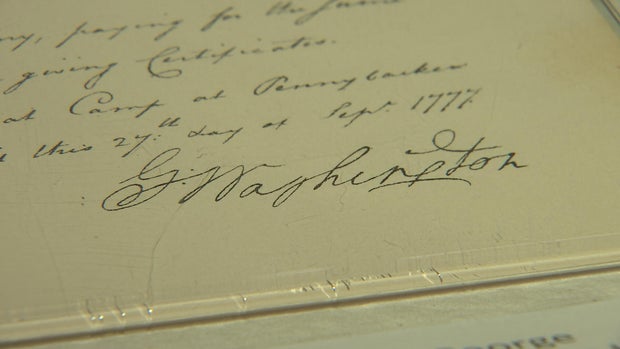 ny, paying for the same
giving Certificates.
at Camp at Pennybacker
this 27.th day of Sept. 1777.
G:Washington
George